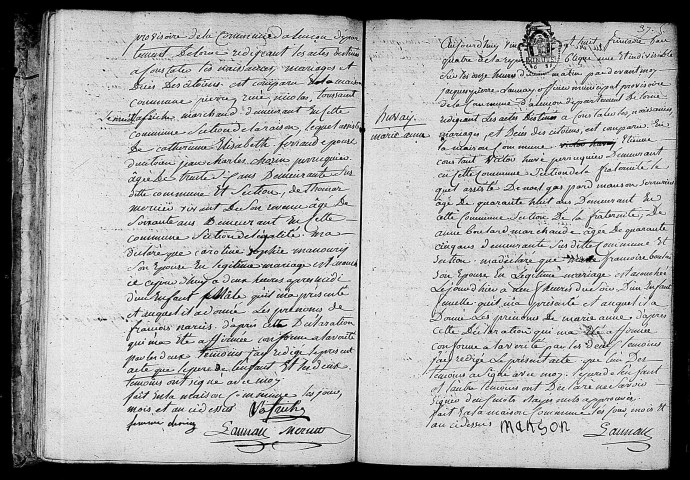 provisoire de la Commune d'alencon depar
tement de lorne redigeant les actes destinés
a constater les naissances, mariages et
Décès des citoiens est comparu la maison
commune pierre rené nicolas toussaint
marchand demeurant en cette
commune section de la raison, lequel assisté
de catherine Elisabeth fernand epouse
du citoien jean charles choisn perruquier
âgée de trente ans Demeurante sur
cette commune et Section, de thomas
mercier vivant de son revenu âgé de
soixante ans Demeurant en cette
commune section de légalité. m'a
déclaré que caroline sophie manoury
son Epouse en legitime mariage est
ce jourd'huy a deux heures apres midi
d'un Enfant mâle qu'il m'a présenté
et auquel il a donné les prenoms de
françois narcis. d'apres cette Déclaration
qui m'a été affirmée conforme a la vérité
par les deux temoins j'ay redigé le present
acte que le pere de l'enfant et les deux
temoins ont signé avec moy.
fait en la maison commune les jour,
mois et an cidessus
Launay Mercier
37.
Aujourd'huy vingt huit frimaire l'an
quatre de la republique une et indivisible
sur les onze heures du matin par devant moy
jacques pierre Launay officier municipal provisoire
de la Commune D'alencon departement de lorne
redigeant les actes destinés a constater les naissances
mariages, et Décès des citoiens, est comparu En
la maison Commune Etienne
constant victor huvé perruquier Demeurant
en cette Commune Section de la fraternité le
quel assisté De mason serrurier
âgé de quarante huit ans Demeurant en
cette Commune section de la fraternité, De
anne boulard marchande âgée de quarante
cinq ans demeurante sur cette Commune et
Section. m'a déclaré que françoise boulard
son Epouse en Légitime mariage est accouchée
Le jourd'hier a heures du soir D'un Enfant
femelle qu'il m'a présenté et auquel il a
Donné Les prénoms de marie anne, d'apres
cette Déclaration qui m'a été affirmée
conforme a la vérité par les deux temoins
j'ay redigé le présent acte que l'un Des
temoins a signé avec moy. Le pere de l'enfant
et l'autre temoins ont Déclaré ne savoir
signer
fait en la maison Commune les jour mois et
an cidessus MASON
Launay
marie anne